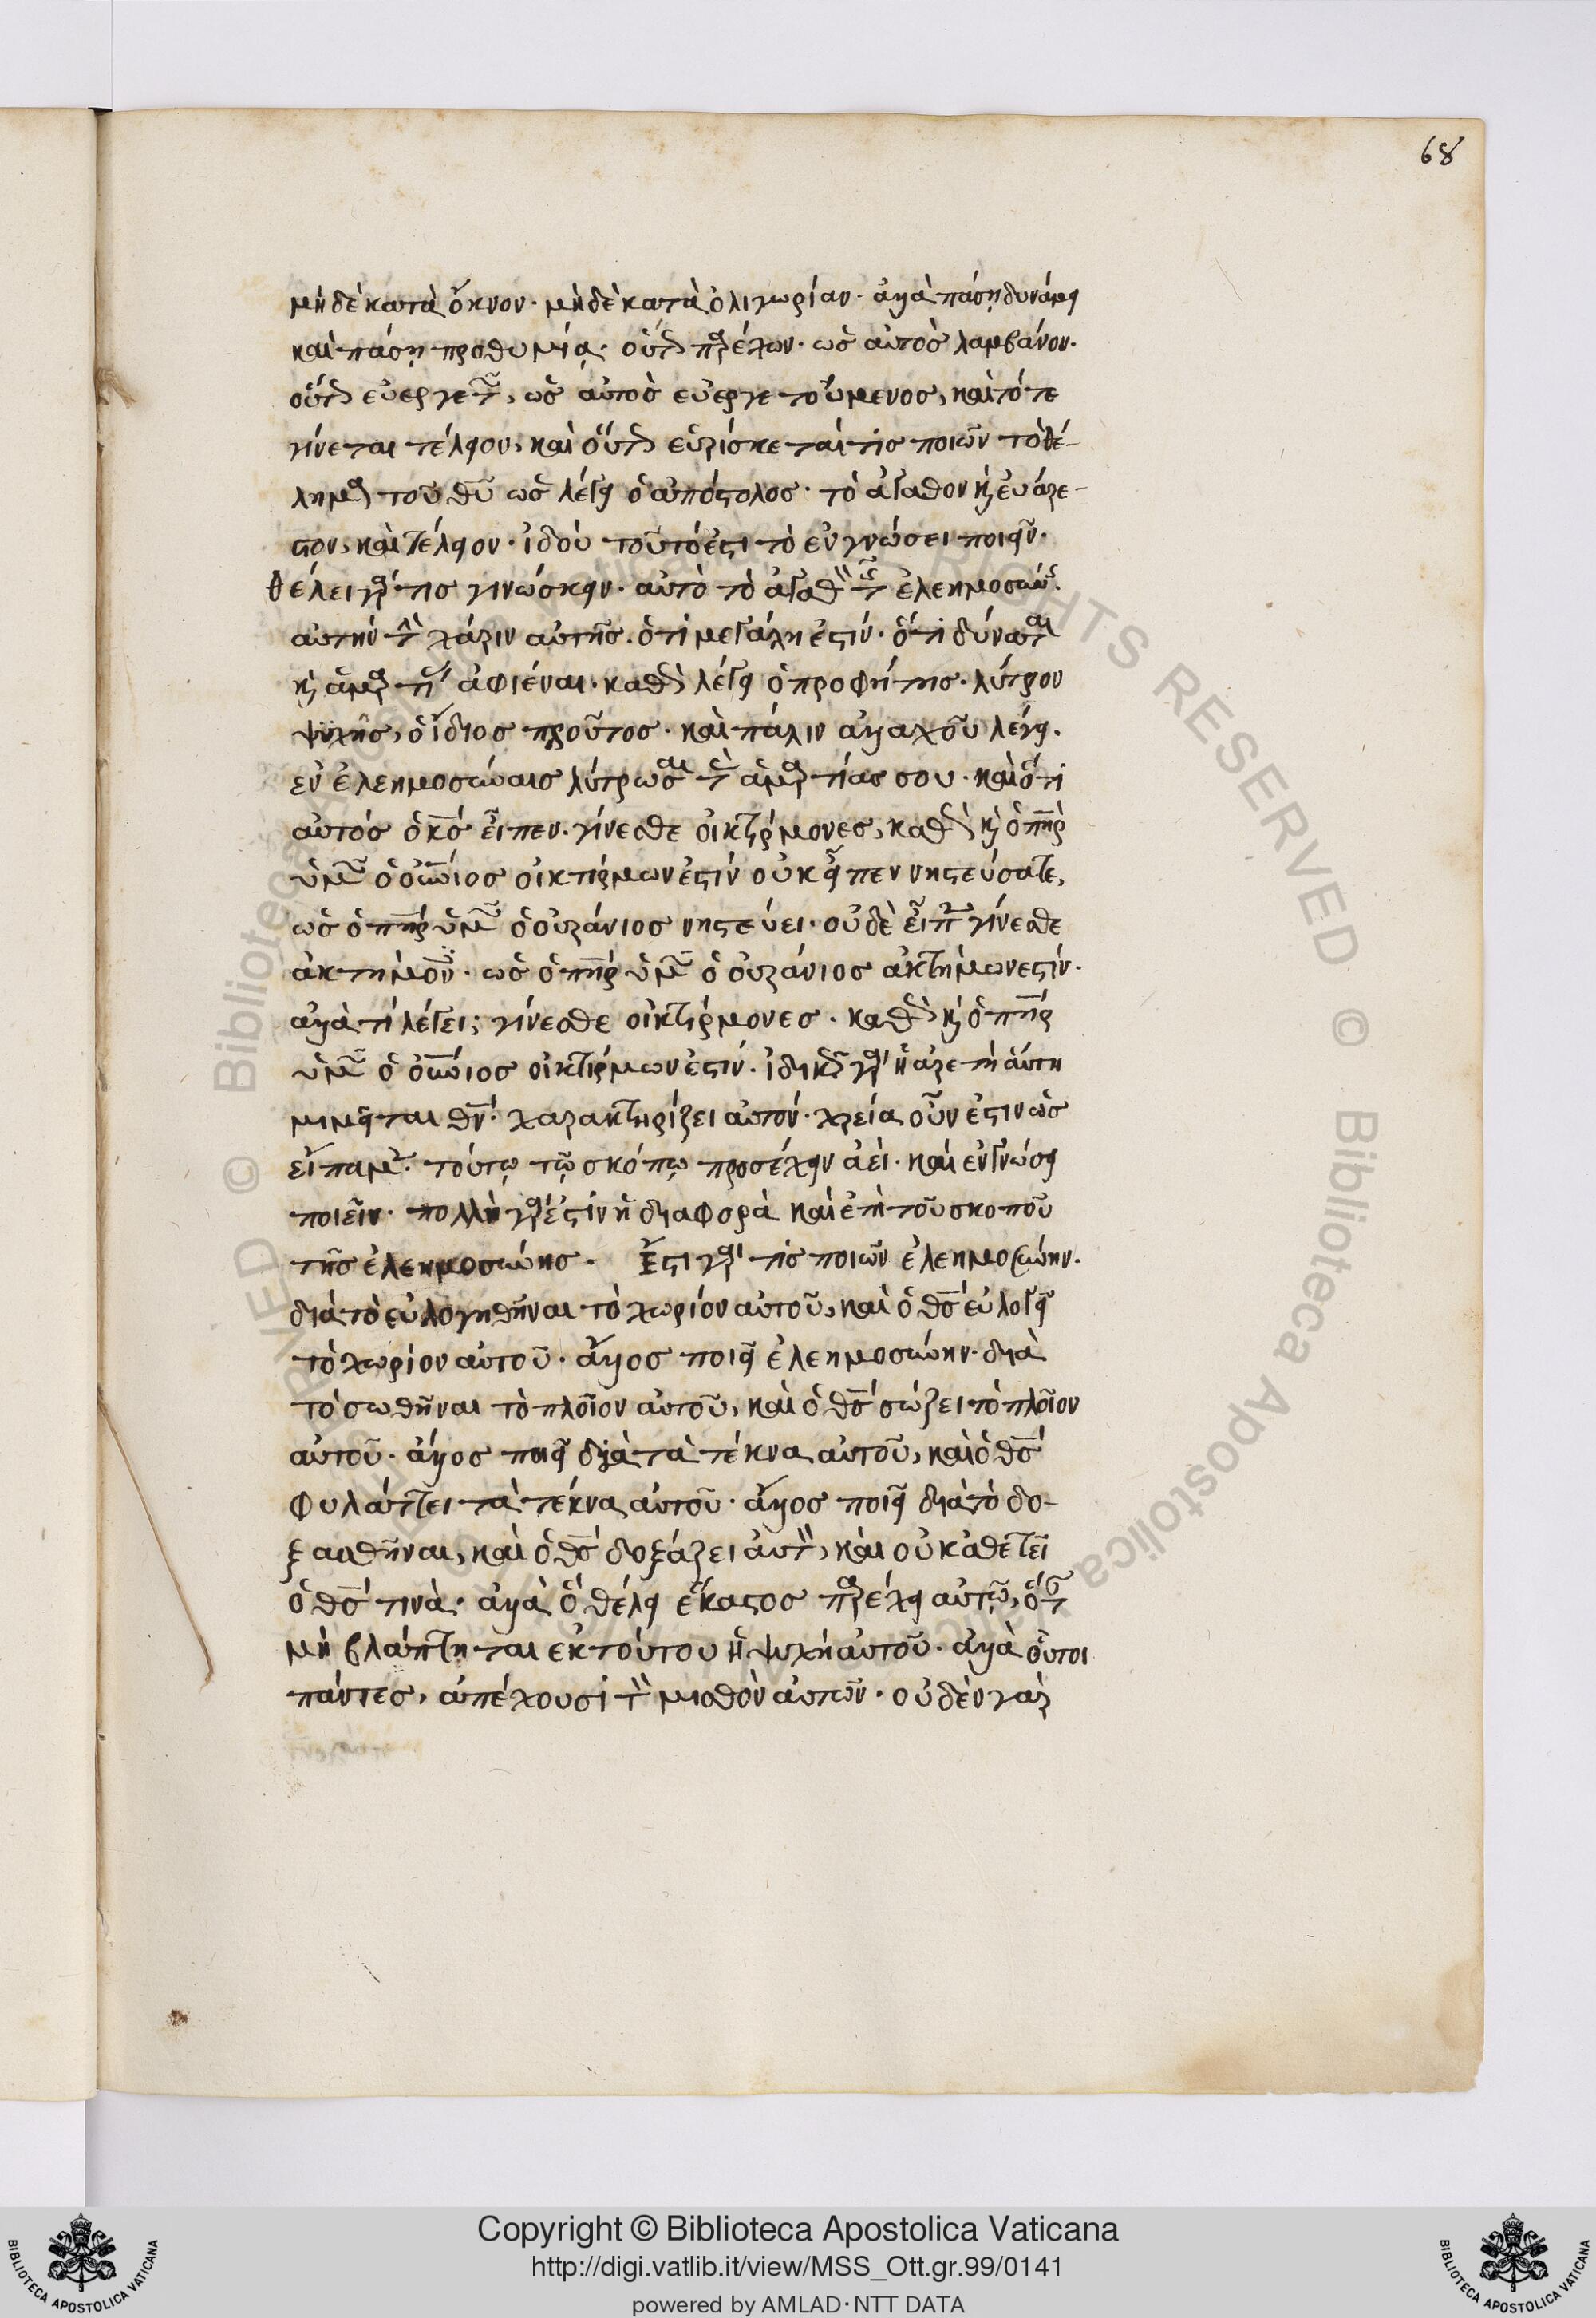 68
μὴ δὲ κατὰ ὄκνον· μὴ δὲ κατὰ ὀλιγωρίαν· ἀλλὰ πάσῃ δυνάμει
καὶ πάσῃ προθυμίᾳ· οὕτως παρέχων· ὡς αὐτὸς λαμβάνον·
οὕτως εὐεργετῶν, ὡς αὐτὸς εὐεργετούμενος, καὶ τότε
γίνεται τέλειον, καὶ οὕτως εὑρίσκεταί τις ποιῶν τὸ θέ-
λημα τοῦ θῦ ὡς λέγει ὁ ἀπόστολος· τὸ ἀγαθον κ εὐάρε-
στον, καὶ τέλειον· ἰδοὺ τοῦτό ἐστι τὸ ἐν γνώσει ποιεῖν·
θέλει γάρ τις γινώσκειν· αὐτὸ τὸ ἀγαθὸν τῆς ἐλεημοσύνης·
αὐτὴν τὴν χάριν αὐτῆς· ὅτι μεγάλη ἐστίν· ὅτι δύναται
κ ἁμαρτίας ἀφιέναι· καθὼς λέγει ὁ προφήτης· λύτρον
ψυχῆς, ὁ ἴδιος πλοῦτος· καὶ πάλιν ἀλλαχοῦ λέγει·
ἐν ἐλεημοσύναις λύτρωσαι τὰς ἁμαρτίας σου· καὶ ὅτι
αὐτὸς ὁ κς εἶπεν· γίνεσθε οἰκτίρμονες, καθὼς κ ὁ πηρ
ὑμῶν ὁ οὐνιος οἰκτίρμων ἐστίν οὐκ εἶπεν νηστεύσατε,
ὡς ὁ πηρ ὑμῶν ὁ οὐράνιος νηστεύει· οὐδὲ εἶπεν γίνεσθε
ἀκτήμονες· ὡς ὁ πηρ ὑμῶν ὁ οὐράνιος ἀκτήμων ἐστίν·
ἀλλὰ τί λέγει; γίνεσθε οἰκτίρμονες· καθὼς κ ὁ πηρ
ὑμῶν ὁ οὐνιος οἰκτίρμων ἐστίν· ἰδικῶς γὰρ ἡ ἀρετὴ αὕτη
μιμεῖται θν· χαρακτηρίζει αὐτόν· χρεία οὖν ἐστιν ὡς
εἴπαμεν· τούτῳ τῷ σκόπῳ προσέχειν ἀεί· καὶ ἐν γνώσει
ποιεῖν· πολλὴ γάρ ἐστίν ἡ διαφορὰ καὶ ἐπὶ τοῦ σκοποῦ
τῆς ἐλεημοσύνης· Ἔστι γάρ τις ποιῶν ἐλεημοσύνην·
διὰ τὸ εὐλογηθῆναι τὸ χωρίον αὐτοῦ, καὶ ὁ θς εὐλογεῖ
τὸ χωρίον αὐτοῦ· ἄλλος ποιεῖ ἐλεημοσύνην· διὰ
τὸ σωθῆναι τὸ πλοῖον αὐτοῦ, καὶ ὁ θς σώζει τὸ πλοῖον
αὐτοῦ· ἄλλος ποιεῖ διὰ τὰ τέκνα αὐτοῦ, καὶ ὁ θς
φυλάττει τὰ τέκνα αὐτοῦ· ἄλλος ποιεῖ διὰ τὸ δο-
ξασθῆναι, καὶ ὁ θς δοξάζει αὐτὸν, καὶ οὐκ ἀθετεῖ
ὁ θς τινὰ· ἀλλὰ ὃ θέλει ἕκαστος παρέχει αὐτῷ, ὅταν
μὴ βλάπτηται ἐκ τούτου ἡ ψυχὴ αὐτοῦ· ἀλλὰ οὗτοι
πάντες, ἀπέχουσι τὸν μισθὸν αὐτῶν· οὐδὲν γὰρ
Copyright © Biblioteca Apostolica Vaticana
http://digi.vatlib.it/view/MSS_Ott.gr.99/0141
powered by AMLAD·NTT DATA